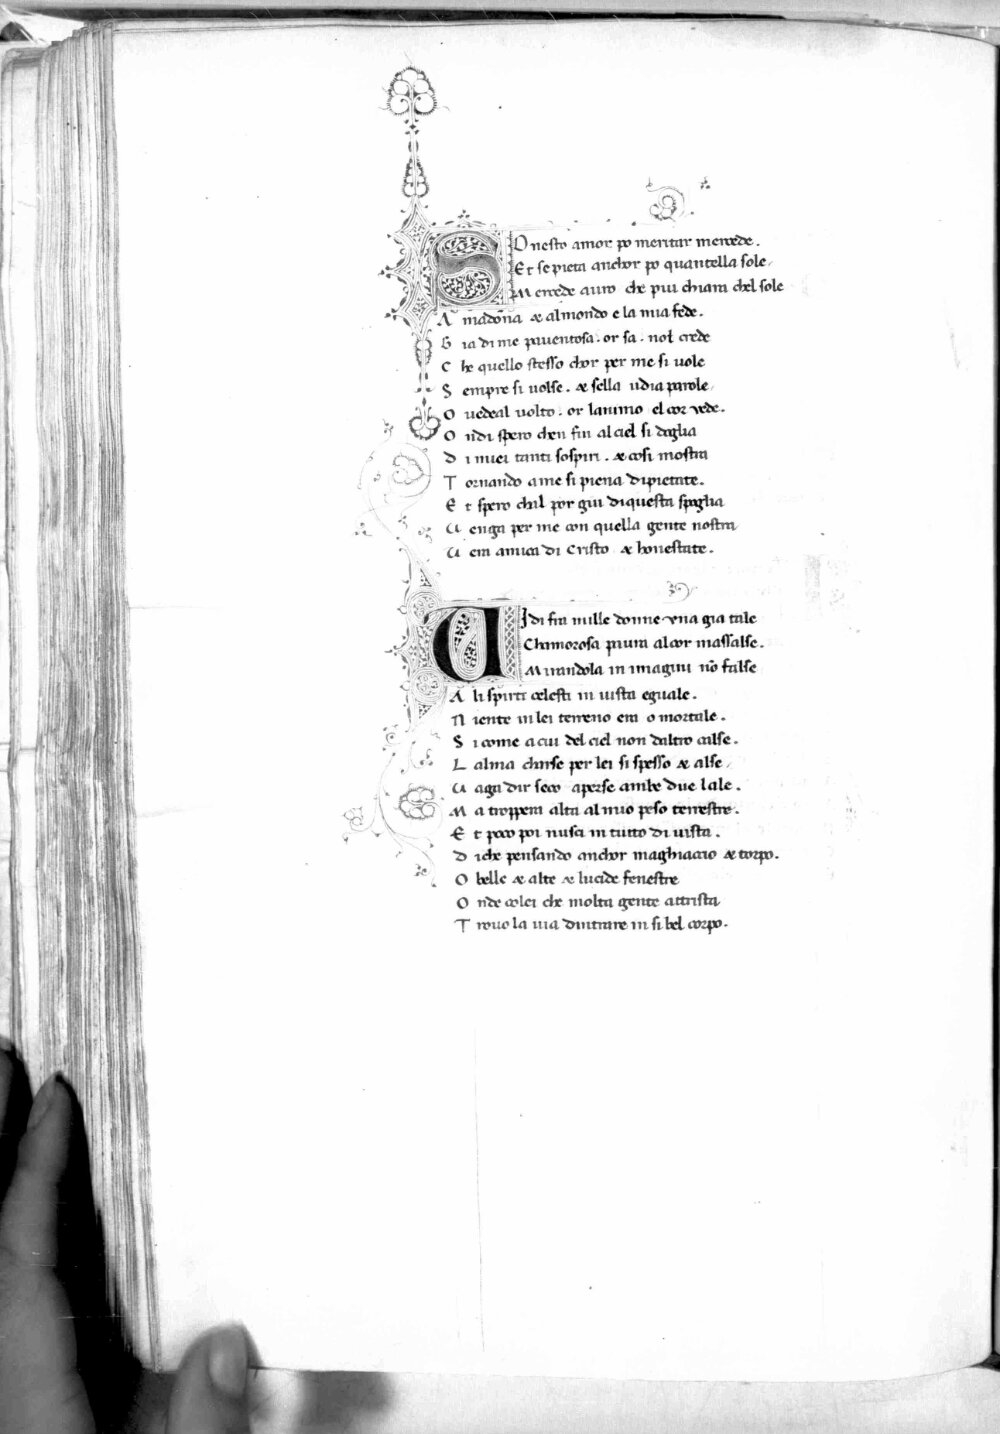 SO nesto amor po meritar mercede.
Et se pieta anchor po quantella sole
Mercede auro che piu chiara chel sole
A madōna & almondo e la mia fede.
G ia di me pauentosa. or sa. nol crede
C he quello stesso chor per me si uole
S empre si uolse. & sella udia parole
O uedeal uolto. or lanimo el cor vede.
O ndi spero chen fin al ciel si doglia
D i miei tanti sospiri. & cosi mostra
T ornando a me si piena di pietate.
E t spero chal por giu di questa spoglia
U enga per me con quella gente nostra
U era amica di Cristo & honestate.
VIdi fra mille donne vna gia tale
Chamorosa paura al cor massalse.
Mirandola in imagini nō false
A li spirti celesti in uista eguale.
N iente in lei terreno era o mortale.
S i come a cui del ciel non daltro calse.
L alma charse per lei si spesso & alse
U aga dir seco aperse ambe due lale.
M a troppera alta al mio peso terrestre.
E t poco poi nusci in tutto di uista.
D i che pensando anchor maghiaccio & torpo.
O belle & alte & lucide fenestre
O nde colei che molta gente attrista
T rouo la uia dintrare in si bel corpo.